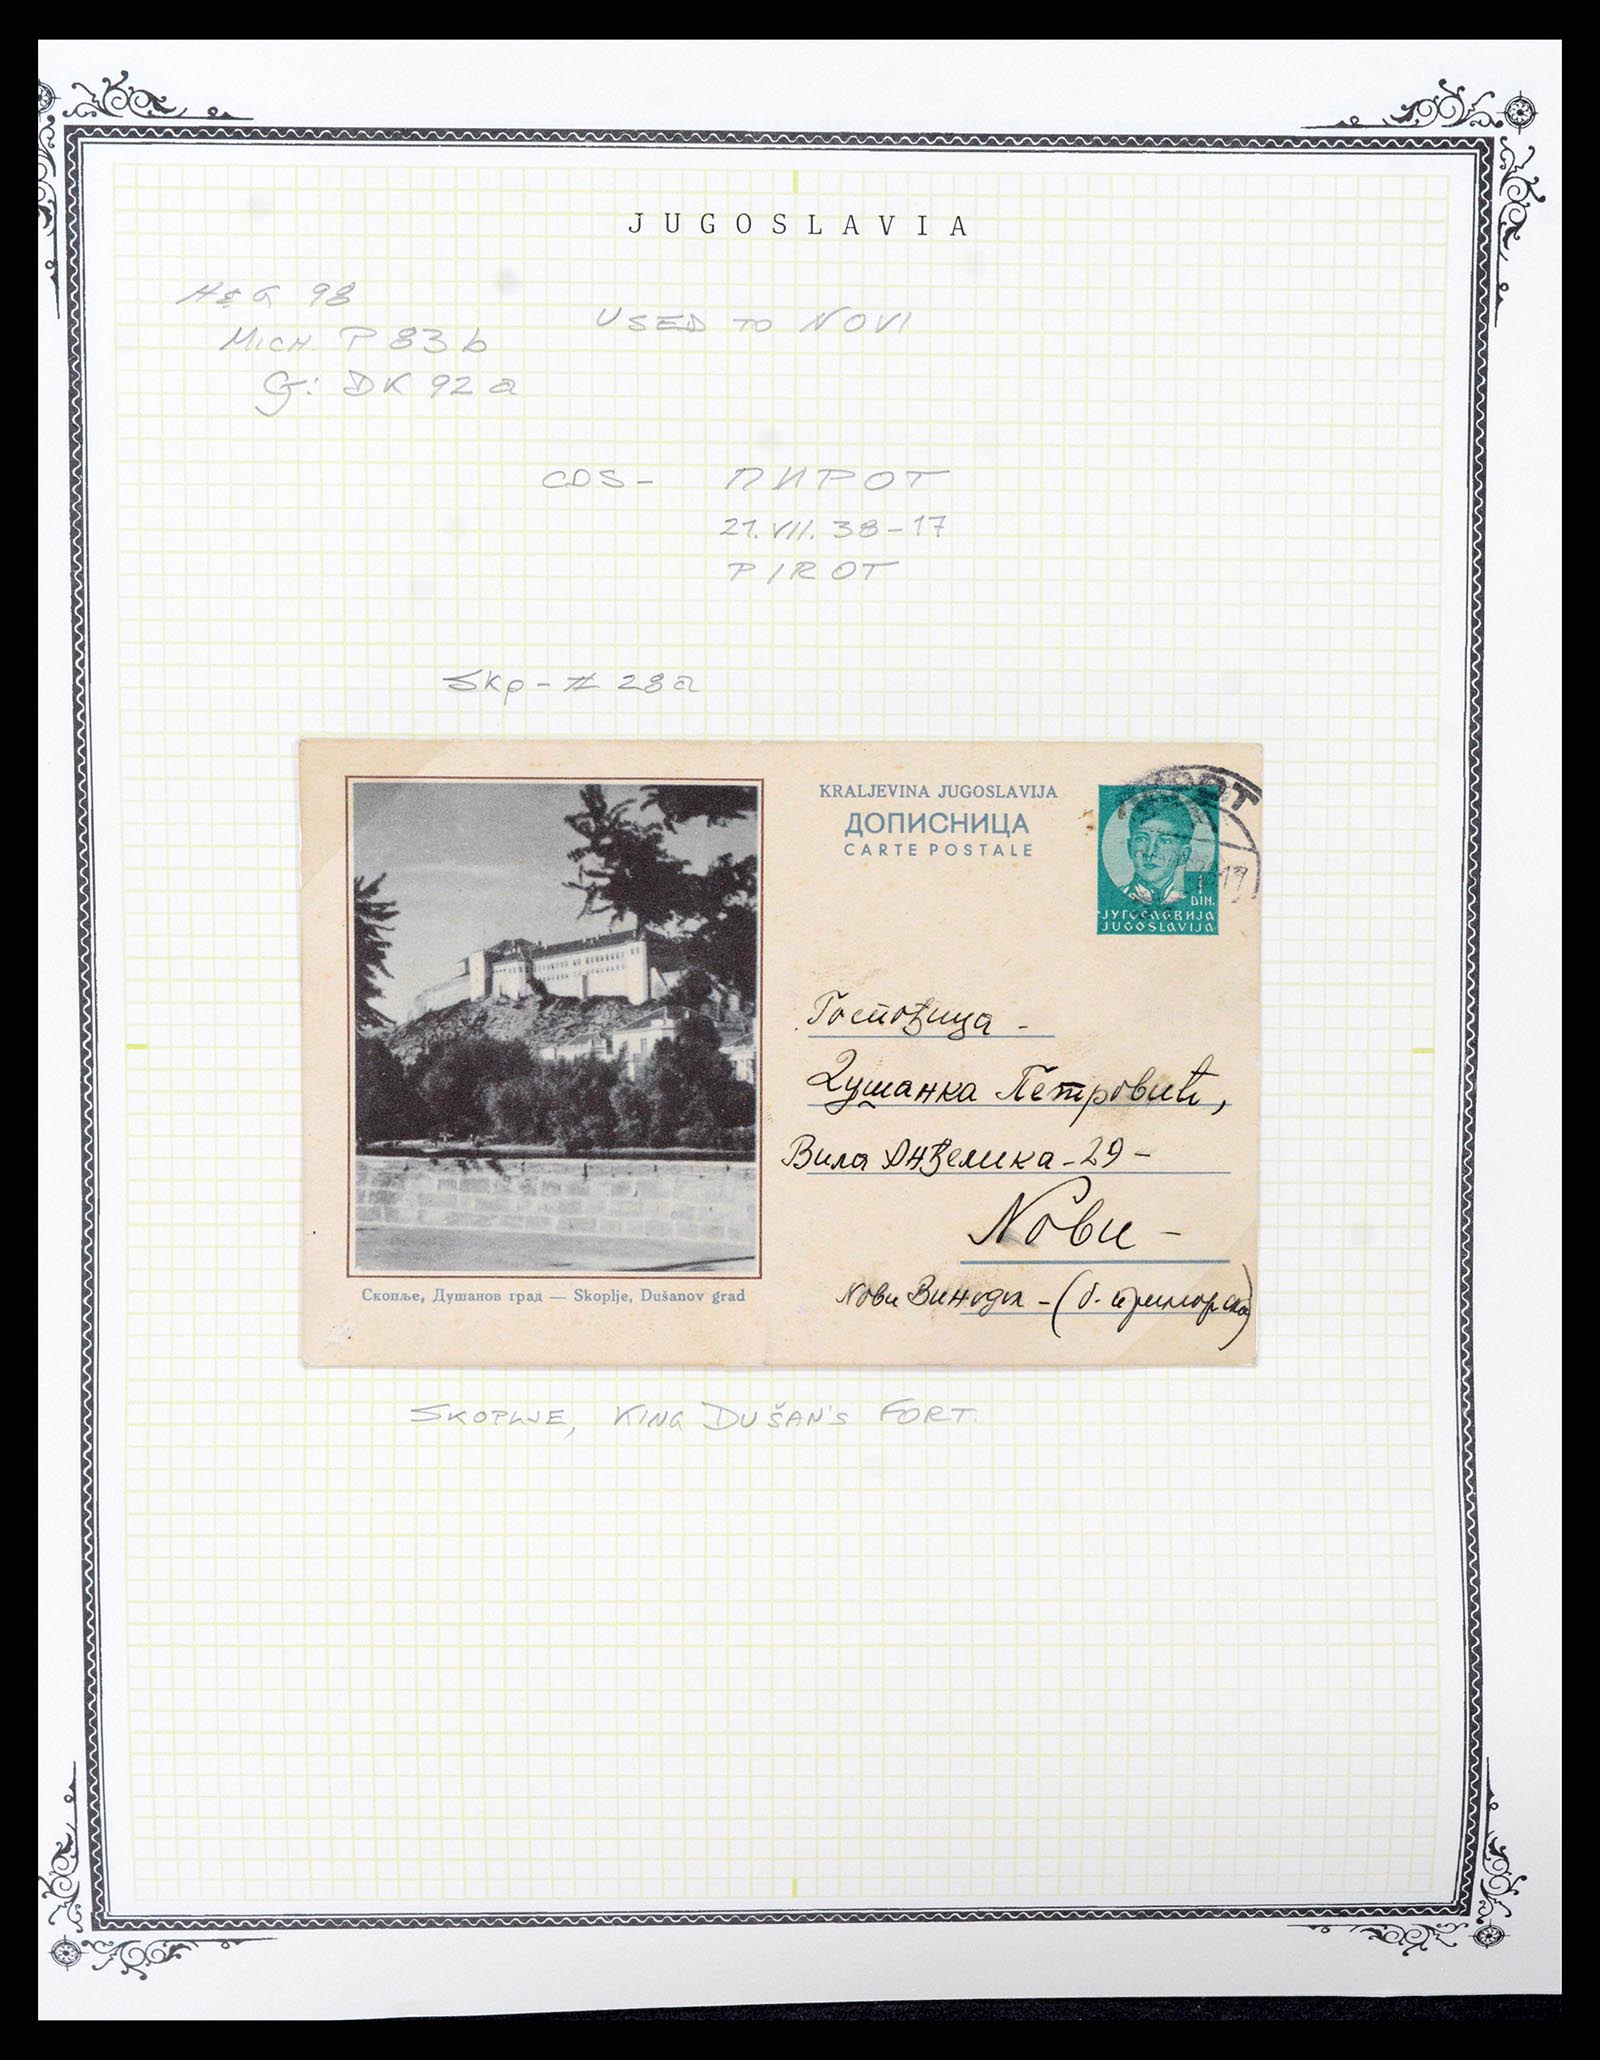 JUGOSLAVIA
H&G 98
MICH. P 83 b
G: DK 92 a
USED TO NOVI
CDS - ПИРОТ
21. VII. 38 - 17
PIROT
Skp - # 28a
KRALJEVINA JUGOSLAVIJA
ДОПИСНИЦА
CARTE POSTALE
1
DIN.
ЈУГОСЛАВИЈА
JUGOSLAVIJA
Госпођица -
Душанка Петровић,
Вила Анђелика - 29 -
Нови -
Нови Винодол - (
Скопље, Душанов град — Skoplje, Dušanov grad
SKOPLJE, KING DUŠAN'S FORT.